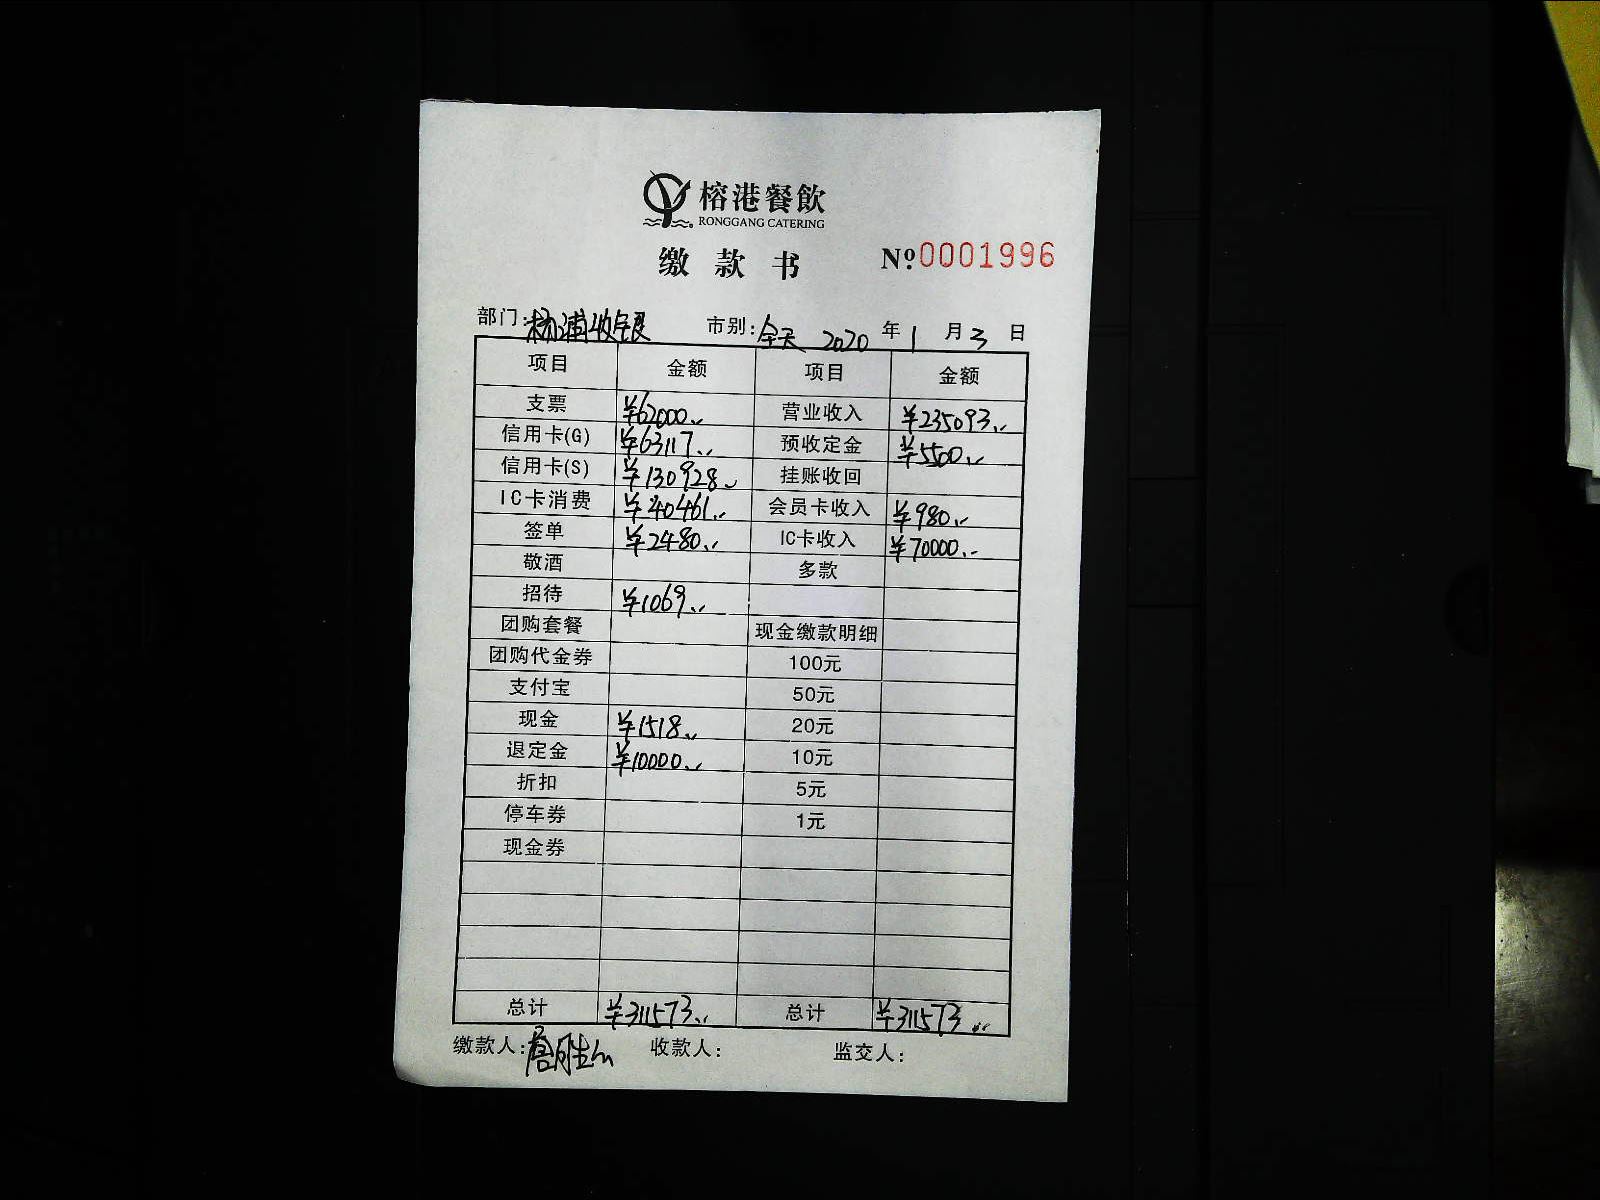 榕港餐飲
RONGGANG CATERING
缴款书 Nº 0001996
部门: 杨浦收银 市别: 全天 2020 年 1 月 3 日
项目 金额 项目 金额
支票 ¥62000.- 营业收入 ¥235093.-
信用卡(G) ¥63117.- 预收定金 ¥5500.-
信用卡(S) ¥130928.- 挂账收回
IC卡消费 ¥40461.- 会员卡收入 ¥980.-
签单 ¥2480.- IC卡收入 ¥70000.-
敬酒 多款
招待 ¥1069.-
团购套餐 现金缴款明细
团购代金券 100元
支付宝 50元
现金 ¥1518.- 20元
退定金 ¥10000.- 10元
折扣 5元
停车券 1元
现金券
总计 ¥311573.- 总计 ¥311573.-
缴款人: 收款人: 监交人: